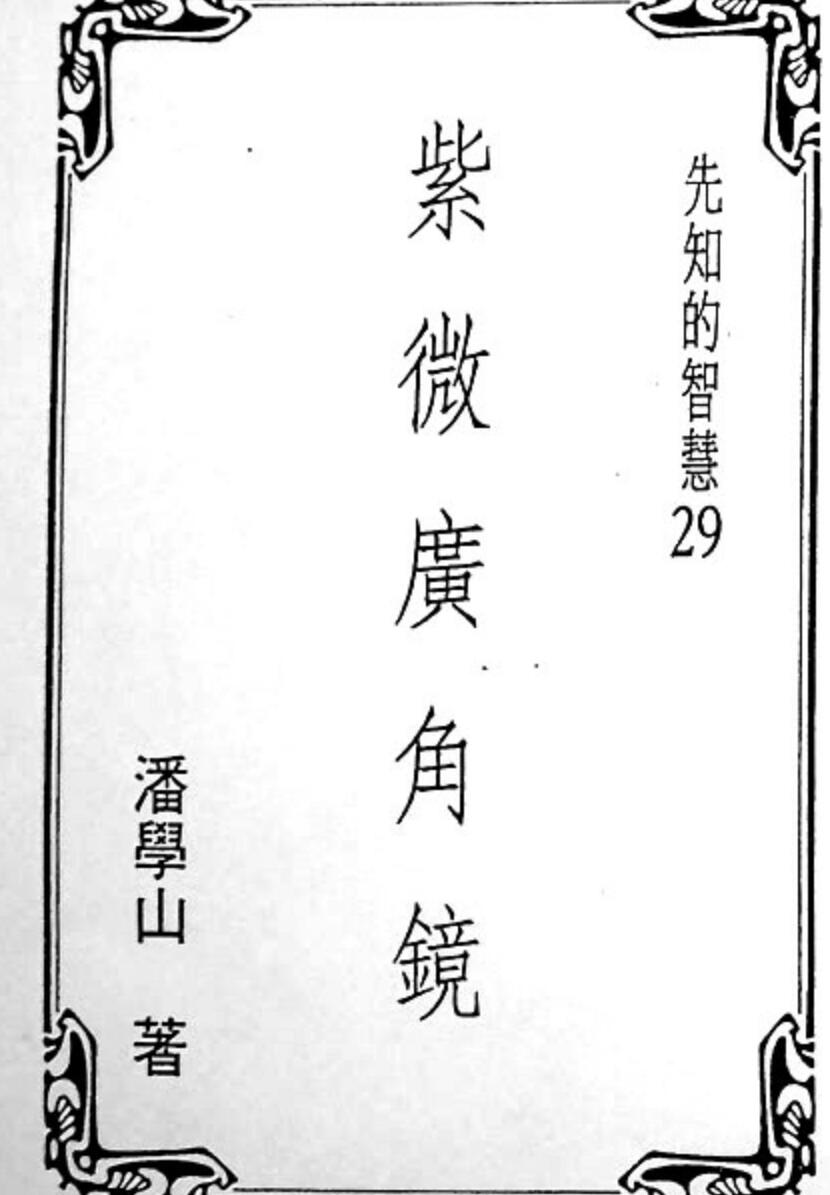 先知的智慧29
紫微廣角鏡
潘學山 著